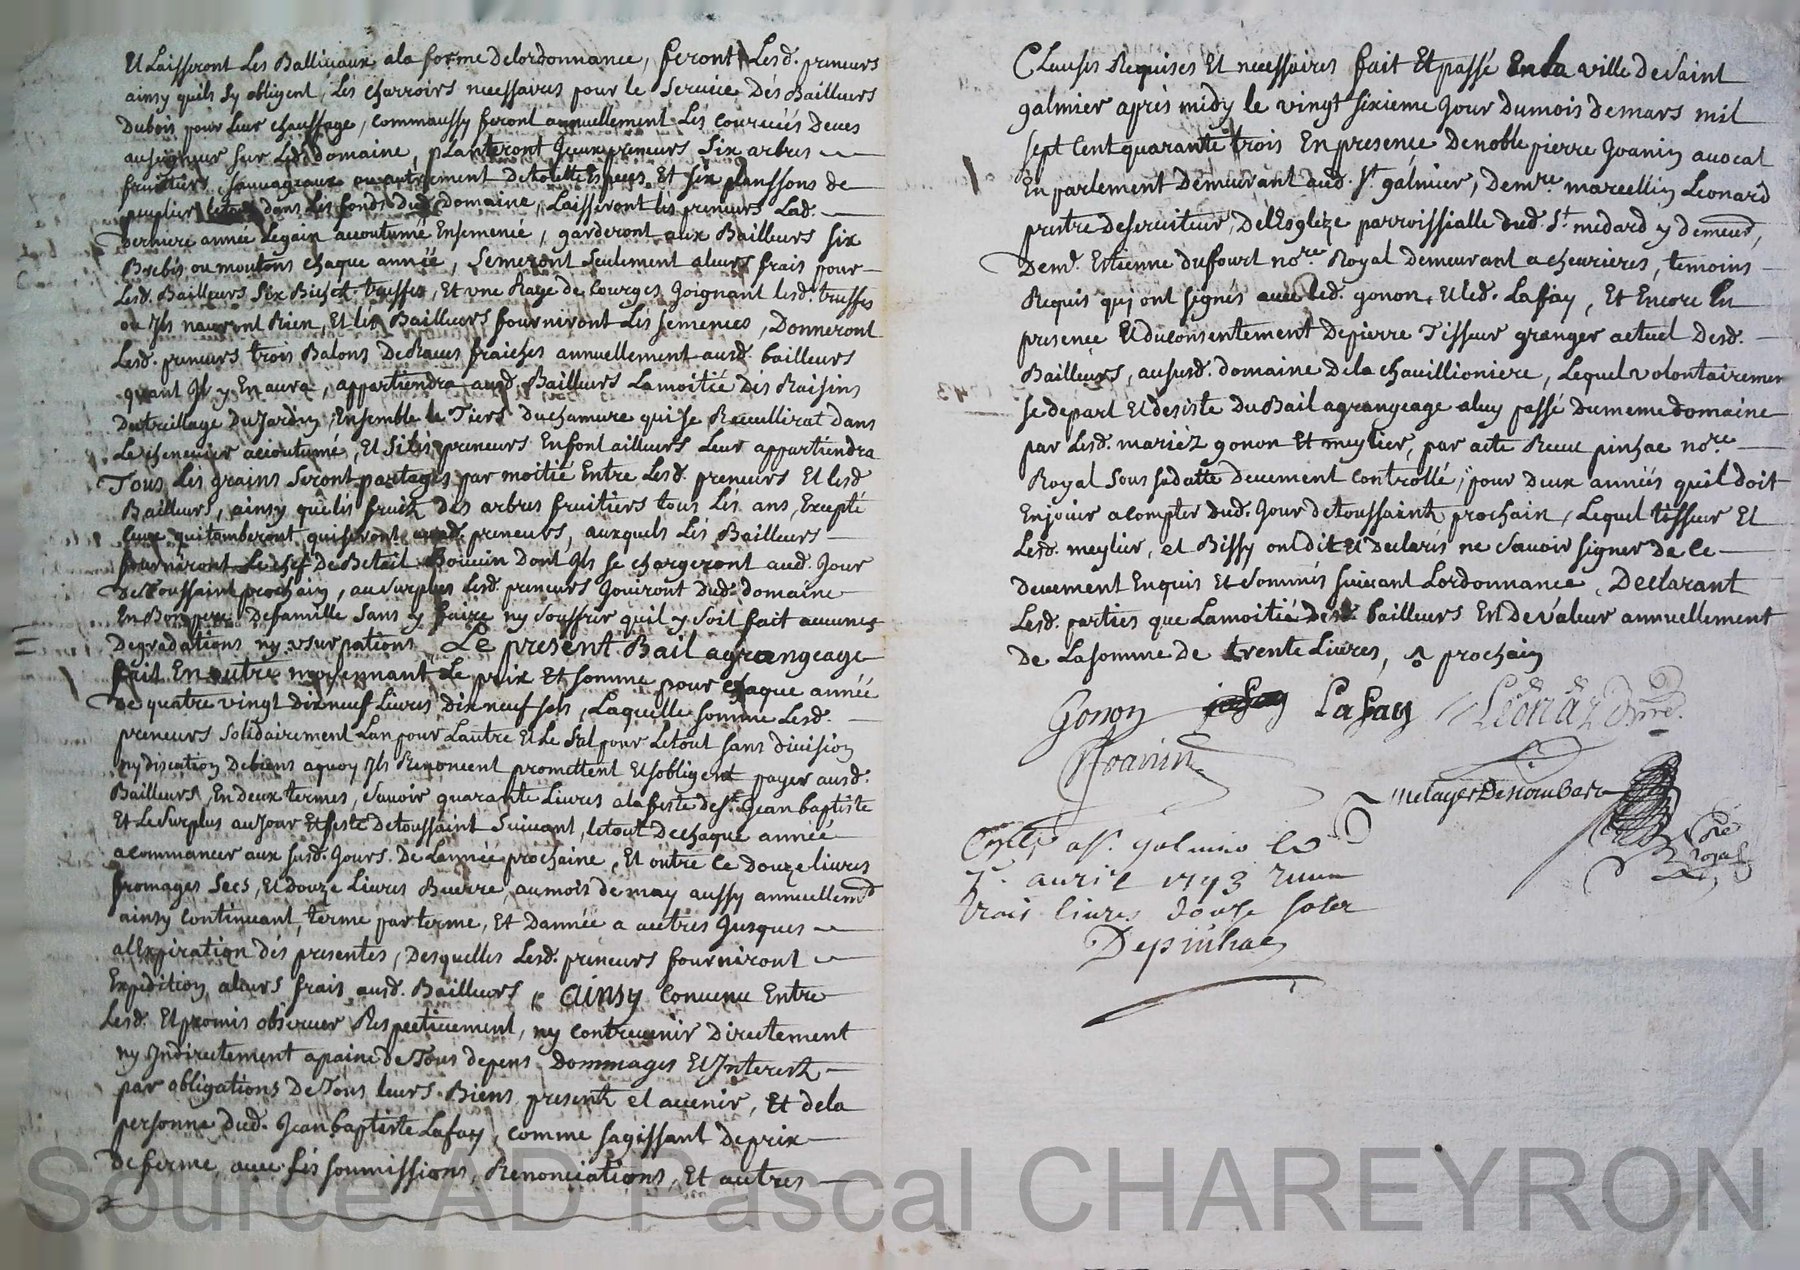 Et Laisseront Les Balliveaux ala forme Delordonnance, feront Lesd. preneurs
ainsy quils sy obligent, Les charroirs necessaires pour le Service Des Bailleurs
Dubois pour Leur chauffage, commaussy feront annuellement Les Courvées Deues
auseigneur sur Led. domaine, planteront Iceux preneurs Six arbres
fruitiers, sauvageaux ou autrement Detoutte Espece, Et six planssons de
peuplier dans Les fonds Dud. Domaine, Laisseront les preneurs Lad.
Derniere année Legain accoutumé Ensemencé, garderont aux Bailleurs six
Brebis ou moutons chaque année, Semeront Seulement aleurs frais pour
Lesd. Bailleurs Six Bichet truffes, Et une Raye de Courges Joignant lesd. truffes
ou Ils nauront Rien, Et les Bailleurs fourniront Les semences, Donneront
Lesd. preneurs trois Balons De Raves fraiches annuellement ausd. bailleurs
quant Il y En aura, appartiendra ausd. Bailleurs Lamoitié des Raisins
Dutreillage Du Jardin, Ensemble le Tiers Duchamvre qui se Recuillirat Dans
Lechenevier accoutumé, Et Siles preneurs Enfont ailleurs Leur appartiendra
Tous Les grains Seront partagés par moitié Entre Lesd. preneurs Et lesd
Bailleurs, ainsy queles fruits des arbres fruitiers tous Les ans, Excepté
Ceux quitomberont quiseront ausd. preneurs, auxquels Les Bailleurs
fourniront Le chef De Betail Bouvin Dont Ils se chargeront aud. Jour
De Toussaint prochain, au Surplus Lesd. preneurs Jouiront Dud. domaine
En Bon pere Defamille Sans y faire ny Souffrir quil y Soit fait aucunes
Degradations ny usurpations, Le present Bail agrangeage
fait En outre moyennant Le prix Et Somme pour chaque année
de quatre vingt dixneuf Livres dixneuf sols, Laquelle somme Lesd.
preneurs Solidairement Lun pour Lautre Et Le Sul pour Letout sans division
ny discution Debiens aquoy Ils Renoncent promettent Et sobligent payer ausd.
Bailleurs, En deux termes, Savoir quarante Livres alafeste de St. Jean baptiste
Et Le Surplus auJour Et feste Detoussaint Suivant, letout Dechaque année
acommancer aux susd. Jours De Lannée prochaine, Et outre Ce Douze livres
fromages Secs, Et douze Livres Beurre, aumois de may aussy annuellemt
ainsy Continuant, terme par terme, Et Dannée a autres Jusques
alExpiration des presentes, Desquelles Lesd. preneurs fourniront
Expedition aleurs frais ausd. Bailleurs, Ainsy Convenu Entre
Lesd. Et promis observer Respectivement, ny contrevenir Directement
ny Indirectement apaine de Tous depens Dommages Et Interest
par obligations De Tous leurs Biens present et avenir, Et dela
personne Dud. Jean baptiste Lafay, comme sagissant De prix
De ferme, avec Les soumissions, Renonciations, Et autres
Clauses Requises Et necessaires fait Et passé En la ville De Saint
galmier aprés midy le vingt sixieme Jour Dumois de mars mil
sept Cent quarante trois En presence De noble pierre Joanin avocat
En parlement Demeurant aud. St. galmier, Demre. marcellin Leonard
prestre deserviteur, De lEsglize parroissialle dud. St. medard y demeurt,
De md. Ettienne dufourt nore. Royal demeurant a chevrieres, temoins
Requis qui ont signés avec led. gonon, Et led. Lafay, Et Encore En
presence Et du consentement Depierre Tisseur granger actuel Desd.
Bailleurs, aususd. domaine Dela chavillioniere, Lequel volontairemen
se depart Et desiste Du Bail agrangeage aluy passé Dumeme domaine
par Lesd. mariéz gonon Et meylier, par acte Receu pinhac nore.
Royal Sous sadatte Deuement Controllé, pour deux années quil doit
Enjouir acompter dud. Jour detoussaint prochain, Lequel tisseur Et
Lesd. meylier, et Bissy ont dit Et Declarés ne Savoir signer de Ce
Deuement Enquis Et Sommés suivant Lordonnance, Declarant
Lesd. parties que Lamoitié Desd. bailleurs En De valeur annuellement
de La somme de trente Livres, prochain
Gonon Lafay Leonard
Joanin
Contlé a St. galmier le
1r. avril 1743 Receu
trois livres douze sols
Depinhac
Source AD Pascal CHAREYRON